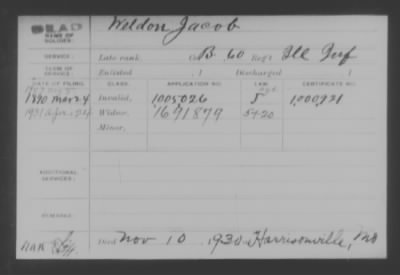 DEAD
Weldon Jacob
NAME OF SOLDIER:
SERVICE:
Late rank, Co B, 60 Reg't Ill Inf
TERM OF SERVICE:
Enlisted , 1 Discharged , 1
DATE OF FILING. CLASS. APPLICATION NO. LAW. CERTIFICATE NO.
1890 Mar 24 Invalid, 1005026 J 1,000,921
1931 Apr Widow, 1691879 5420
Minor,
ADDITIONAL SERVICES:
REMARKS:
Died Nov 10, 1930 Harrisonville, Mo